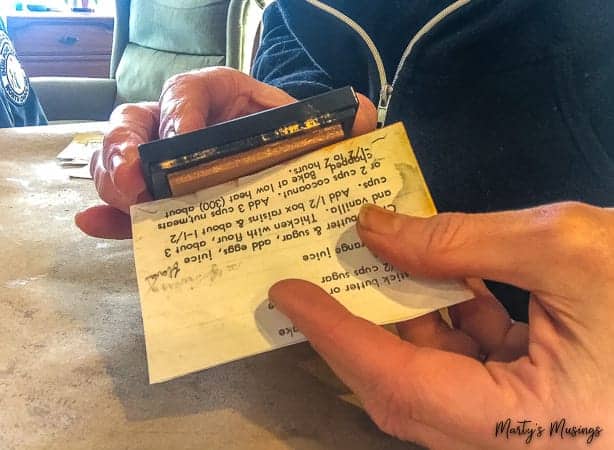 ake
stick butter or
/2 cups sugar
range juice
butter & sugar, add eggs, juice
and vanilla. Thicken with flour, about 3
cups. Add 1/2 box raisins & about 1-1/2
or 2 cups coconut. Add 3 cups nut,meats
chopped. Bake at low heat (300) about
1/2 to 2 hours.
Marty's Musings